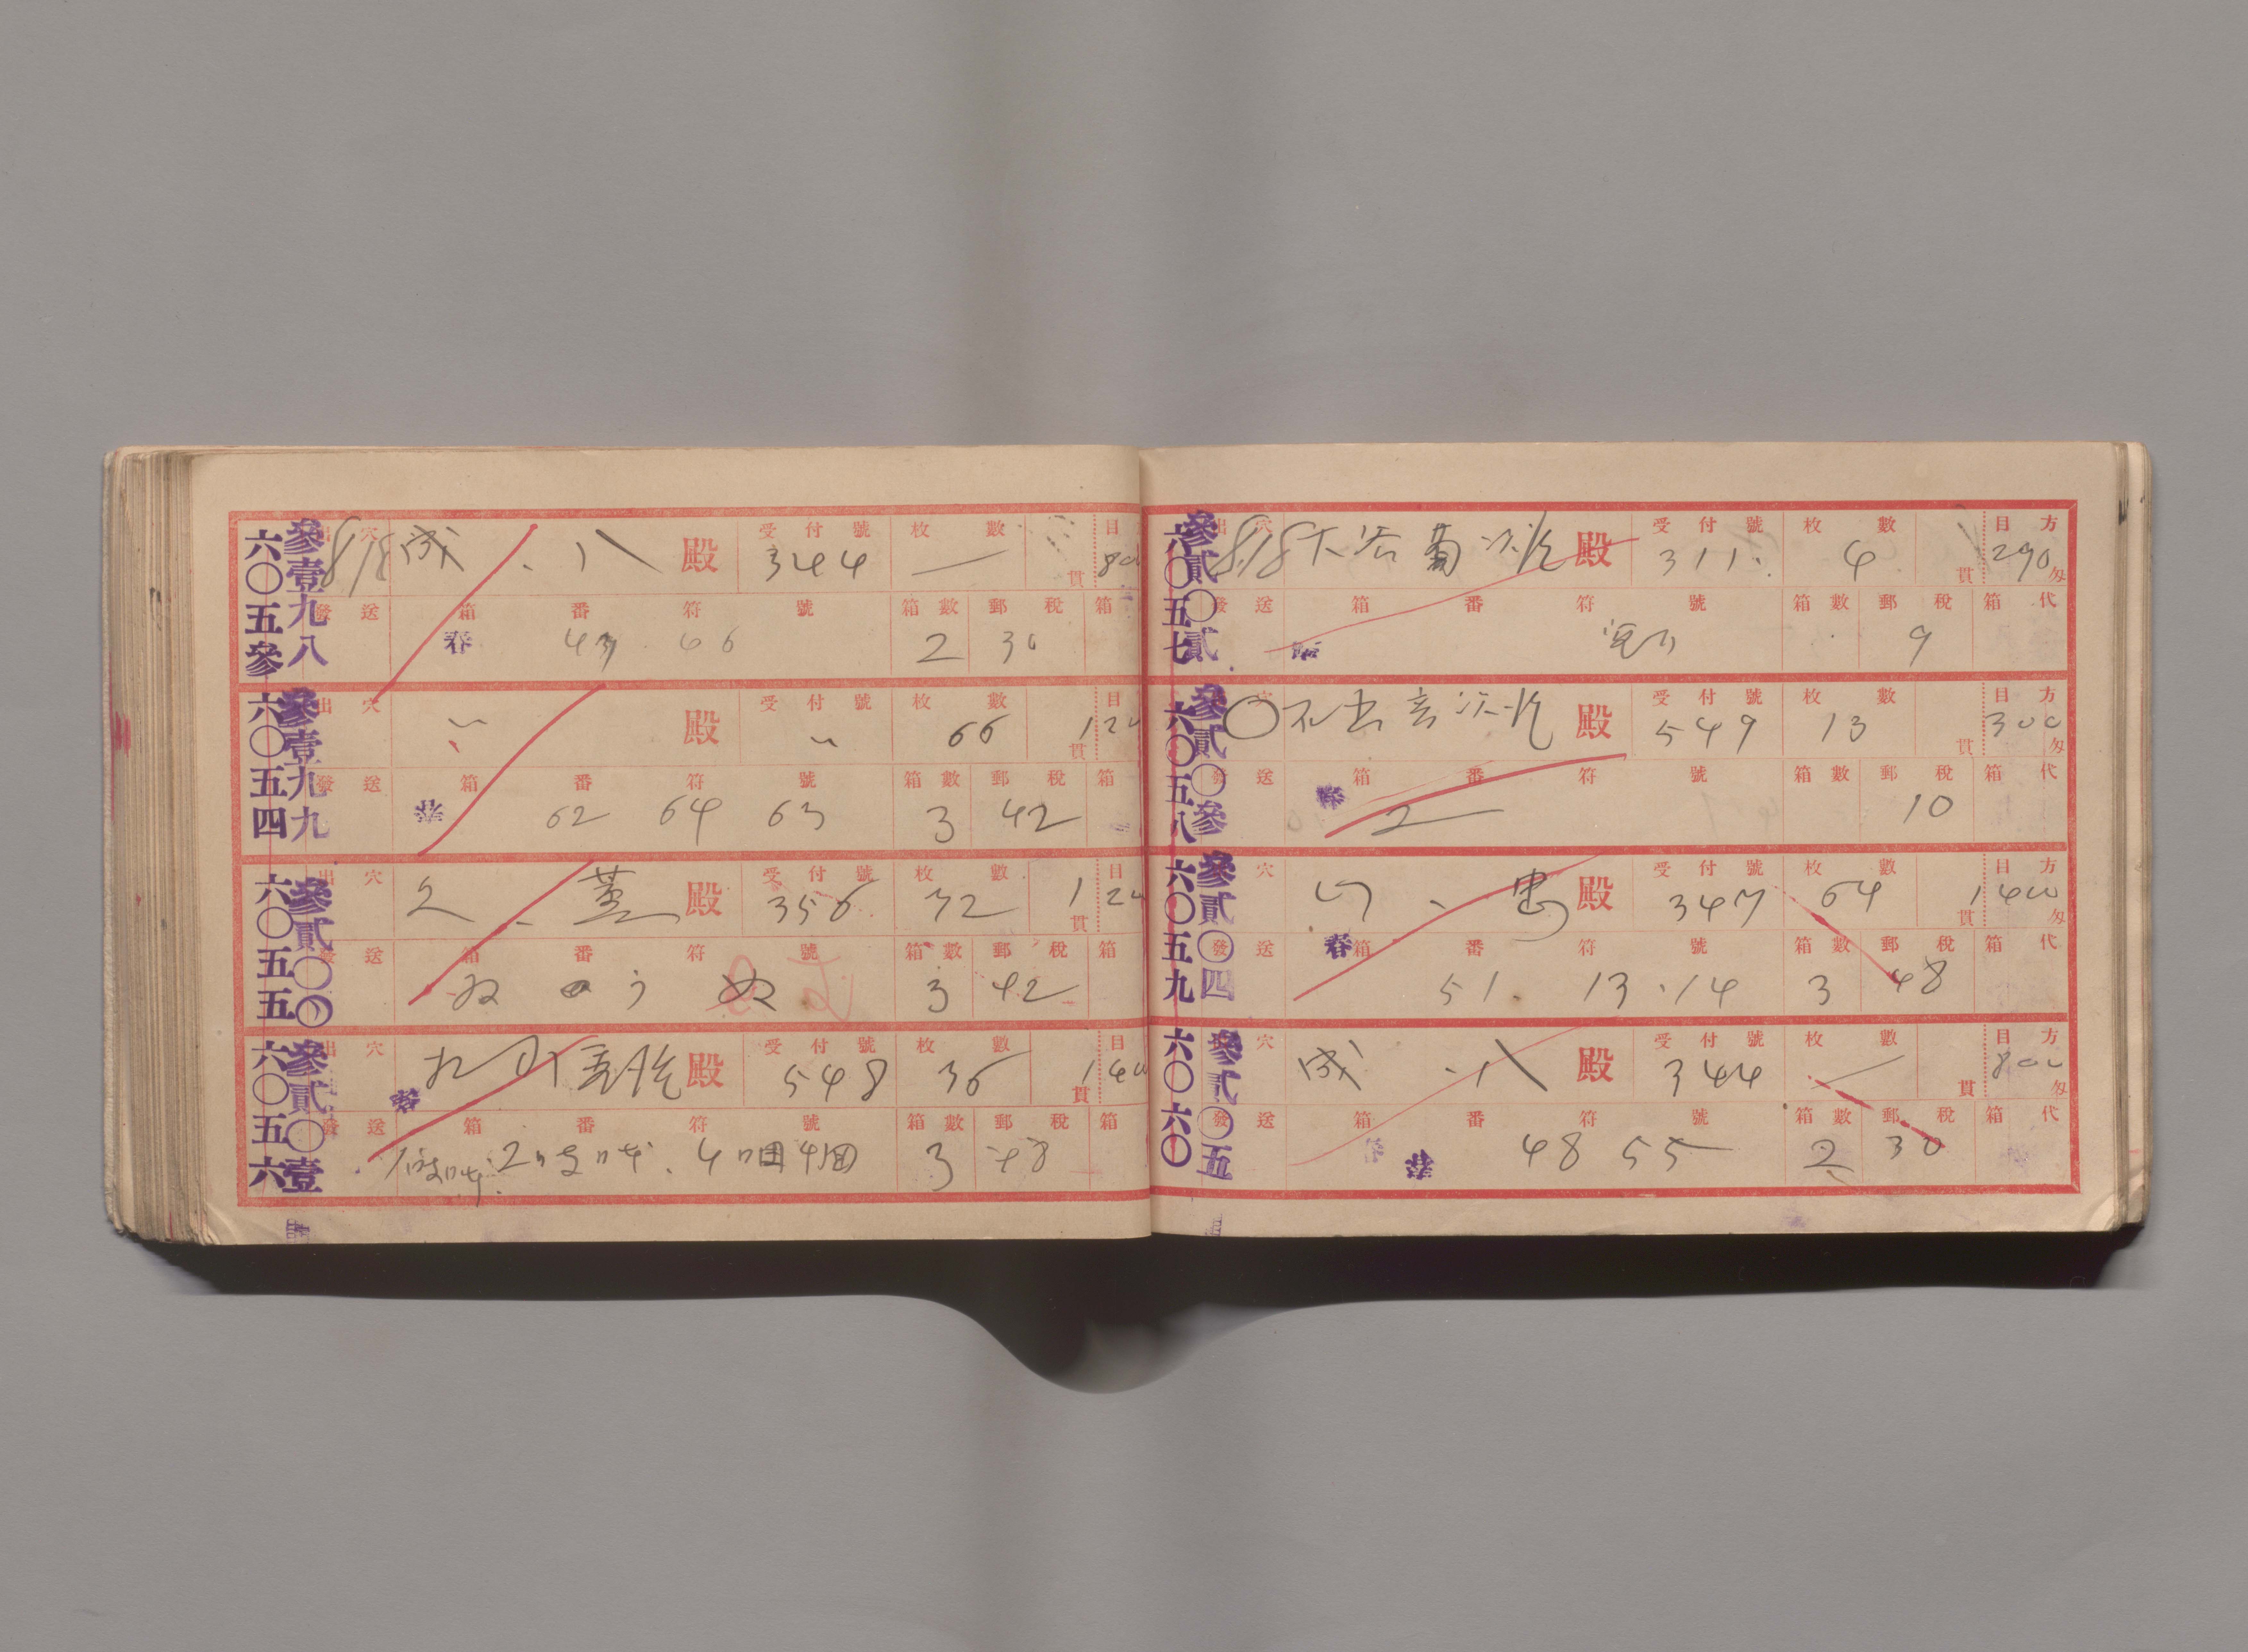 參壹九八
六〇五參
出穴 8/18 成、八 殿 受付號 344 枚數 一 貫 目 800
發送 箱番符號 春 43 66 箱數 2 郵稅 30 箱
參壹九九
六〇五四
出穴 〃 殿 受付號 〃 枚數 66 1貫 目 120
發送 箱番符號 春 62 64 63 箱數 3 郵稅 42 箱
參貳〇〇
六〇五五
出穴 久、 殿 受付號 356 枚數 32 1貫 目 120
發送 箱番符號 箱數 3 郵稅 42 箱
參貳〇壹
六〇五六
出穴 殿 受付號 548 枚數 36 1貫 目 140
發送 箱番符號 箱數 3 郵稅 48 箱
參貳〇貳
六〇五七
出穴 8/18 大谷菊次 殿 受付號 311 枚數 4 貫 目方 290 匁
發送 箱番符號 箱數 郵稅 9 箱代
參貳〇參
六〇五八
穴 殿 受付號 549 枚數 13 貫 目方 300 匁
發送 箱番符號 春 2 箱數 郵稅 10 箱代
參貳〇四
六〇五九
穴 忠 殿 受付號 347 枚數 64 1貫 目方 400 匁
發送 箱番符號 春 51. 13.14 箱數 3 郵稅 48 箱代
參貳〇五
六〇六〇
穴 成、八 殿 受付號 344 枚數 一 貫 目方 800 匁
發送 箱番符號 春 48 55 箱數 2 郵稅 30 箱代